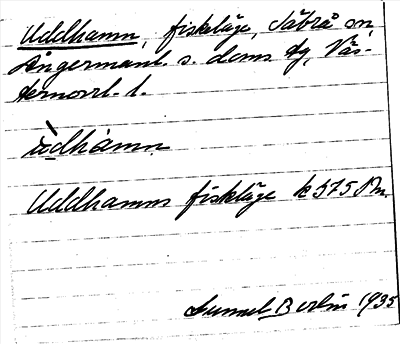 Uddhamn, fiskeläge, Säbrå sn,
Ångermanl. s. doms. tg, Väs-
ternorrl. l.
ùdhàmn
Uddhamns fiskeläge k 575 Bm.
Gunnel Berlin 1935